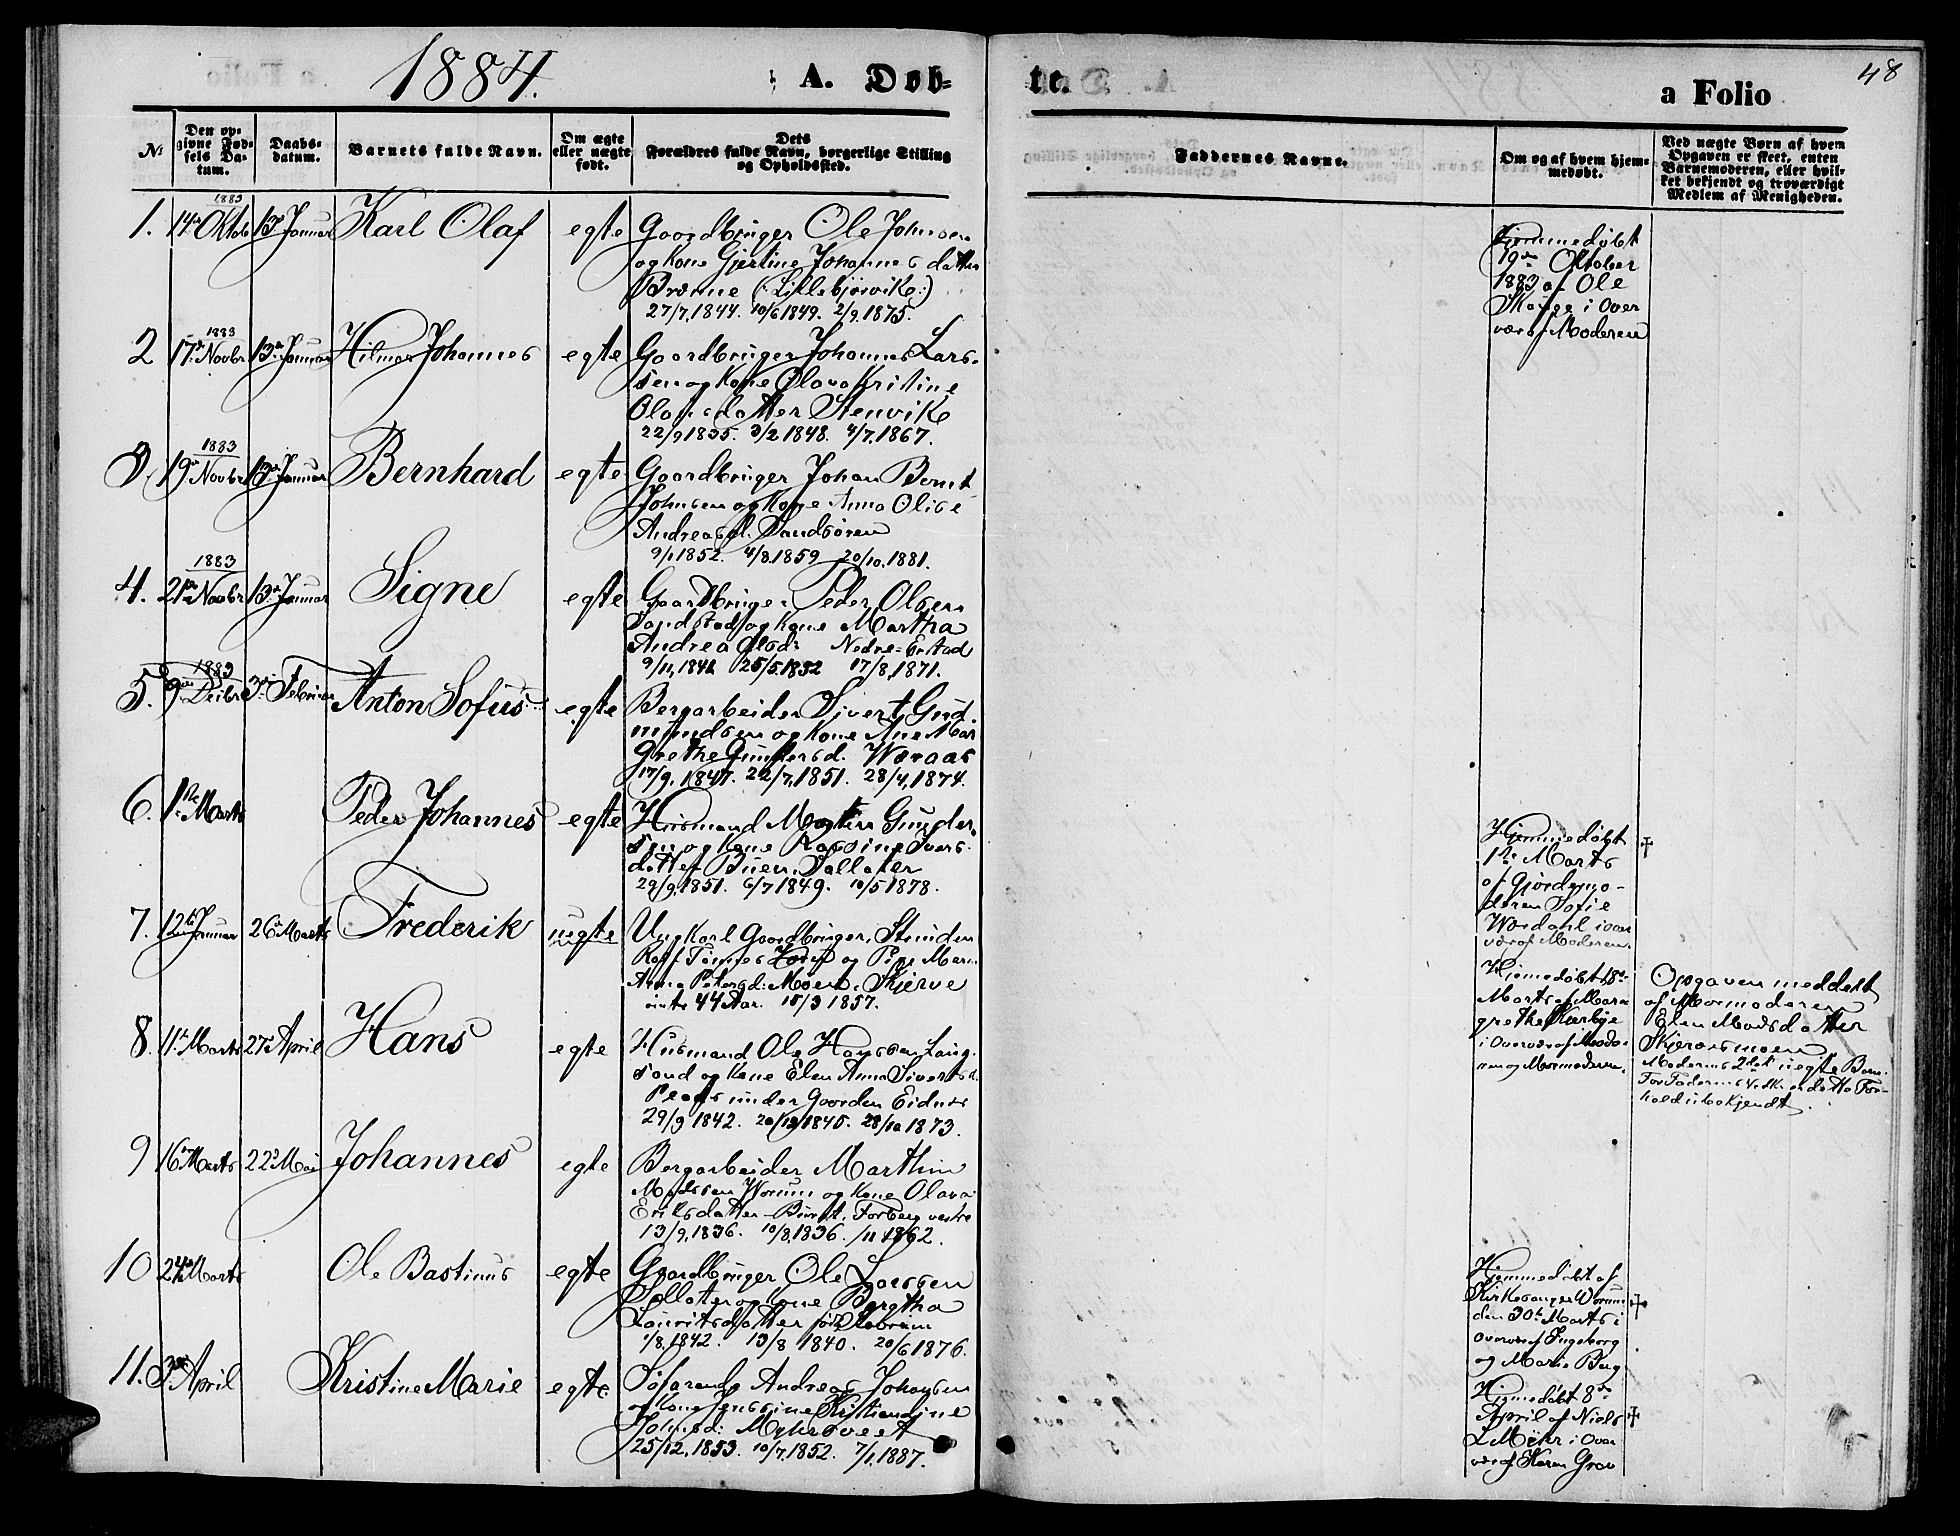 1884.
A. Døb-
te.
a Folio
48
No
Den op-
givne Fød-
sels Da-
tum.
Daabs-
datum.
Barnets fulde Navn.
Om ægte
eller uægte
født.
Dets
Forældres fulde Navn, borgerlige Stilling
og Opholdssted.
Faddernes Navne.
Om og af hvem hjem-
medøbt.
Ved uægte Børn af hvem
Opgaven er skeet, enten
Barnemoderen, eller hvil-
ket bekjendt og troværdigt
Medlem af Menigheden.
1883
1. 14de Oktob 13de Januar Karl Olaf egte Gaardbruger Ole Johnsen
og Kone Gjertine Johannesdatter
Brømne (: Lillebjørvike :)
27/7, 1844. 10/6 1849. 2/9, 1875.
Hjemmedøbt
19de Oktober
1883 af Ole
Skauge i Over
vær af Moderen
1883
2 17de Novbr 13de Januar Hilmar Johannes egte Gaardbruger Johannes Lars-
sen og Kone Olava Kristine
Olausdatter Stenvike
22/9 1835. 3/2 1848. 4/7, 1867.
1883
3. 19de Novbr 13de Januar Bernhard egte Gaardbruger Johan Bernt
Johnsen og Kone Anna Olise
Andreasd. Sandsøren
9/1, 1852. 4/8 1859 20/10, 1881.
1883
4. 21de Novbr 13de Januar Signe egte Gaardbruger Peder Olsen
Sandstad og Kone Martha
Andrea Olsd: Nedre-Erstad
9/11, 1841 25/5 1832 17/8, 1871.
1883
5. 9de Dcibr 3de Februar Anton Sofus egte Bergarbeider Sivert Gud
mundsen og Kone Ane Mar
Grethe Gundersd. Weraas
17/9, 1847. 22/7, 1851. 28/4, 1874.
6. 1ste Marts Peder Johannes egte Husmand Martin Gunder
sen og Kone Rassine Ivers
datter Buen, Solloter
29/9, 1851. 6/7 1849. 10/5 1878.
Hjemmedøbt
1ste Marts
af Gjordemo-
deren Sofie
Wordahl i over
vær af Moderen.
†
7. 12te Januar 26de Marts Frederik uegte Ungkarl Gaardbruger, Strinden
Rolf Tønnes og Pige Maren
Anna Petersd: Moen. Skjerve
44 Aar. 15/3 1857.
Hjemedøbt 18de
Marts af Mar
grethe Kierbye
i Overvær af Mode-
ren og Mormoderen.
Opgaven meddelt
af Mormoderen
Elen Madsdatter
Skjervsmoen
Moderens 2det uegte Barn
For Faderens Vedk. er dette For-
hold ubekjendt.
8. 11te Marts 27de April Hans egte Husmand Ole Hanssen Lang
sand og Kone Elen Anna Sivertsd.
Plads under Gaarden Eidnes
29/9 1842. 20/12 1840. 28/10 1873.
9 16de Marts 22de Mai Johannes egte Bergarbeider Marthin
Madssen Worum og Kone Olava
Eriksdatter - Forberg vestre
13/9, 1836. 10/8, 1836. /11 1862.
10 24de Marts Ole Bastinus egte Gaardbruger Ole Larssen
Solloter og Kone Beretha
Lauritsdatter
1/8, 1842. 13/8 1840. 20/6 1876.
Hjemmedøbt af
Kirkesanger Worum
den 30te Marts i
Overvær af Ingeborg
og Marie Berg.
†
11. 3die April Kristine Marie egte Søfarende Andreas Johansen
og Kone Jenssine Kristiandine
Johnsd: Myhrsveet
25/12, 1853. 10/7, 1852. 7/1, 1887.
Hjemedøbt 8de
April af Niels
L Myhr i Over
vær af Karen Grav
†